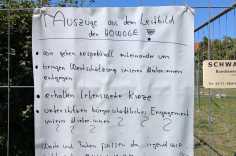 Auszüge aus dem Leitbild
der HOWOGE
• Wir gehen respektvoll miteinander um
• bringen Wertschätzung unseren Mieter:innen
entgegen
• erhalten lebenswerte Kieze
• unterstützen bürgerschaftliches Engagement
unserer Mieter:innen
? ? ? ? ?
Worte und Taten passen da irgendwie
SCHWA